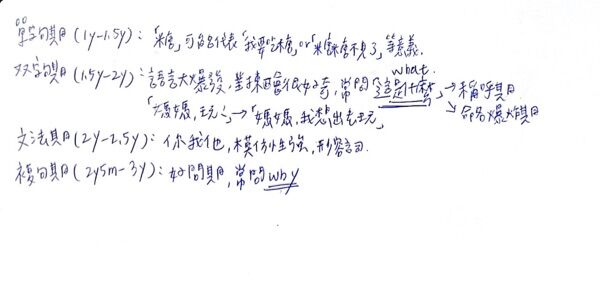 單字句期(1y-1.5y):「糖」可能代表「我要吃糖」or「糖糖不見了」等意義.
双字期(1.5y-2y):語言大爆發,對東西會很好奇,常問「這是什麼」→稱呼期
what
「媽媽,玩」→「媽媽,我想出去玩」 ↘命名爆炸期
文法期(2y-2.5y):你我他,模仿性強,形容詞.
複句期(2y5m-3y):好問期,常問why